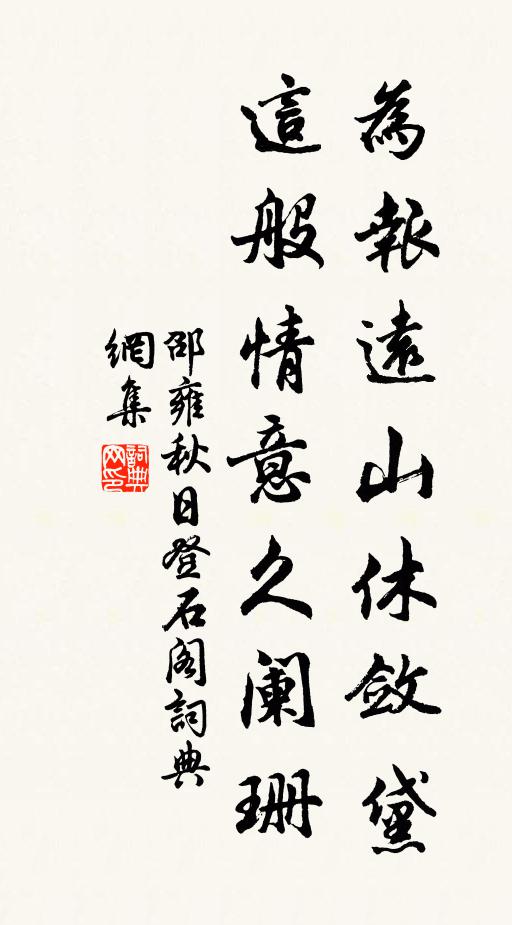 為報遠山休斂黛
這般情意久阑珊
邵雍秋日登石阁詞典
網集
詞典网印